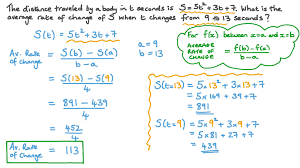 The distance traveled by a body in t seconds is S=5t²+3t+7. What is the
average rate of change of S when t changes from 9 to 13 seconds?
S(t) = 5t²+3t+7
Av. Rate of Change = S(b) - S(a) / b-a
= S(13) - S(9) / 4
= 891 - 439 / 4
= 452 / 4
Av. Rate of Change = 113
a = 9
b = 13
For f(x) between x=a and x=b
AVERAGE RATE OF CHANGE = f(b)-f(a) / b-a
S(t=13) = 5×13² + 3×13 +7
= 5×169 + 39 + 7
= 891
S(t=9) = 5×9² + 3×9 +7
= 5×81 + 27 +7
= 439